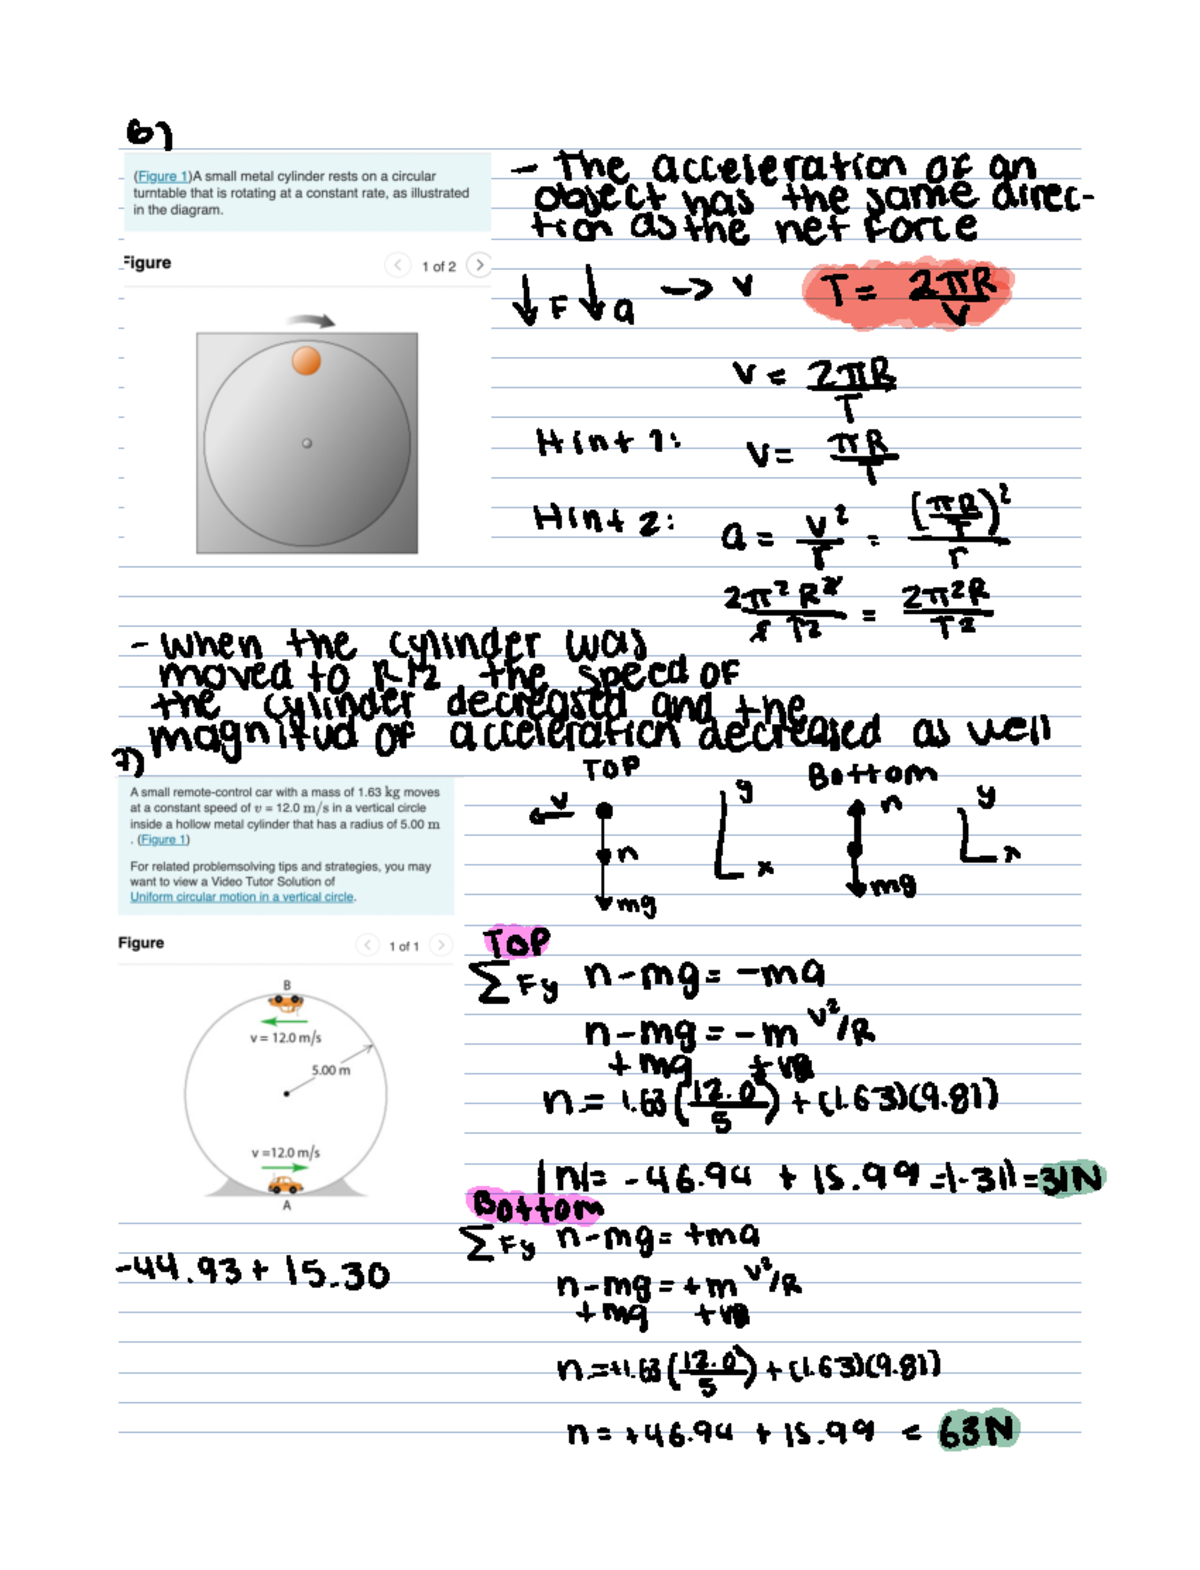 6)
(Figure 1)A small metal cylinder rests on a circular
turntable that is rotating at a constant rate, as illustrated
in the diagram.
Figure
1 of 2
- The acceleration of an
object has the same direc-
tion as the net force
↓F ↓a → v
T = 2πR/V
v = 2πR/T
Hint 1: v = πR/T
Hint 2: a = v²/r = (πR/T)²/r
2π²R²/rT² = 2π²R/T²
- When the cylinder was
moved to R/2 the speed of
the cylinder decreased and the
magnitud of acceleration decreased as well
7)
A small remote-control car with a mass of 1.63 kg moves
at a constant speed of v = 12.0 m/s in a vertical circle
inside a hollow metal cylinder that has a radius of 5.00 m
. (Figure 1)
For related problemsolving tips and strategies, you may
want to view a Video Tutor Solution of
Uniform circular motion in a vertical circle.
Figure
1 of 1
B
v = 12.0 m/s
5.00 m
v =12.0 m/s
A
-44.93 + 15.30
TOP
Bottom
v
n
mg
y
x
n
mg
y
x
TOP
ΣFy n-mg = -ma
n-mg = -m v²/R
+mg
n = 1.63 (12.0²/5) + (1.63)(9.81)
|n| = -46.94 + 15.99 = |-31| = 31N
Bottom
ΣFy n-mg = +ma
n-mg = +m v²/R
+mg
n = +1.63 (12.0²/5) + (1.63)(9.81)
n = +46.94 + 15.99 = 63N